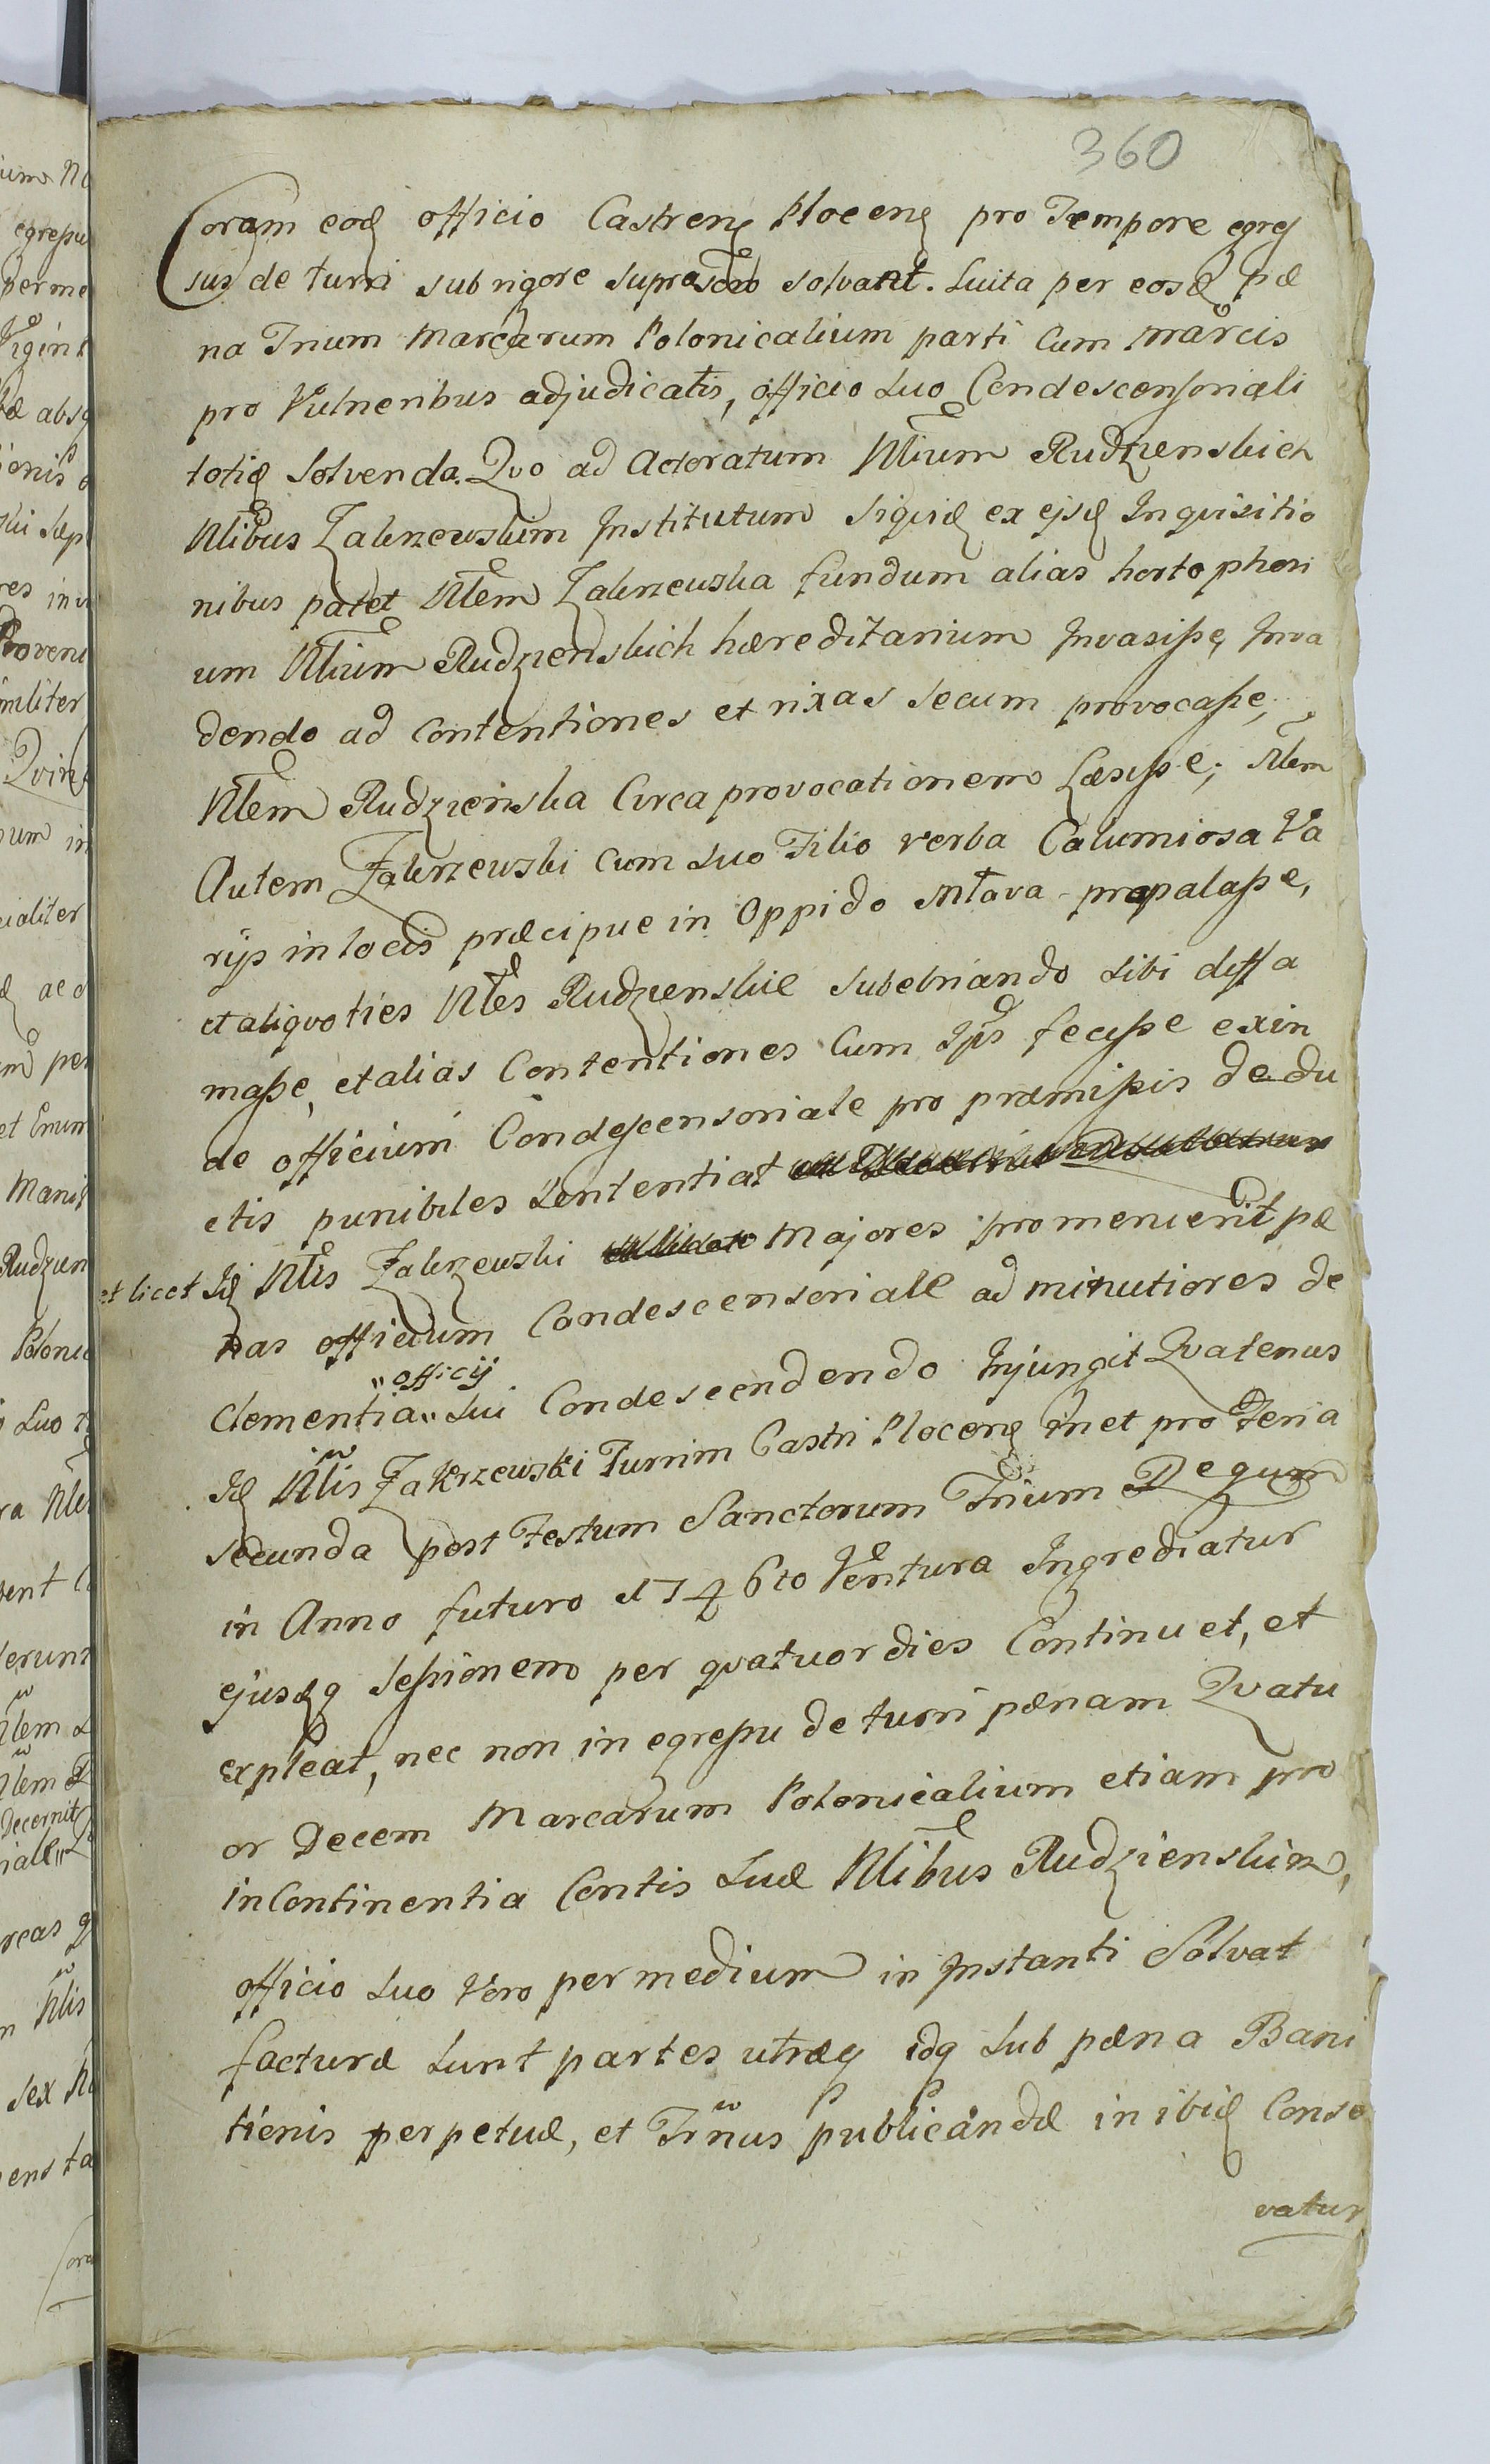 360
Coram eod officio Castren Plocen pro Tempore egres
sus de turri sub rigore suprascto solvant. Luita per eosd pæ
na Trium Marcarum Polonicalium parti cum marcis
pro Vulneribus adjudicatis, officio suo Condescensoriali
totid solvenda. Qvo ad Actoratum Nlium Rudzienskich
Nlibus Zakrzewskim Institutum siqvid ex ejsd Inqvisitio
nibus patet Nlem Zakrzewska fundum alias hortophori
um Nlium Rudzienskich hæreditarium Invasiße, Inva
dendo ad contentiones et rixas secum provocaße,
Nlem Rudzieńska Circa provocationem Læsiße; Nlem
Autem Zakrzewski cum suo Filio verba Calumiosa Va
rijs in locis præcipue in Oppido Mława propalaße,
et aliqvoties Nles Rudzienskie subebriando sibi diffa
maße, et alias Contentiones Cum Ipis feciße exin
de officium Condescensoriale pro præmißis dedu
ctis punibiles sententiat
et licet Id Nlis Zakrzewski Majores promenierit pæ
nas officium Condescensoriale ad minutiores de
officij
Clementia sui Condescendendo Injungit Qvatenus
Id Nlis Zakrzewski Turrim Castri Plocen inet pro Feria
secunda post Festum Sanctorum Trium Regum
in Anno futuro 1746to Ventura Ingrediatur
ejusdq seßionem per qvatuor dies Continuet, et
expleat, nec non in egreßu de turri pænam Qvatu
or Decem Marcarum Polonicalium etiam pro
inContinentia Contis suæ Nlibus Rudzienskim,
officio suo Vero per medium in Instanti Solvat
facturæ sunt partes utræq idq sub pæna Bani
tionis perpetuæ, et Trnus publicandæ in ibid Conse
vatur